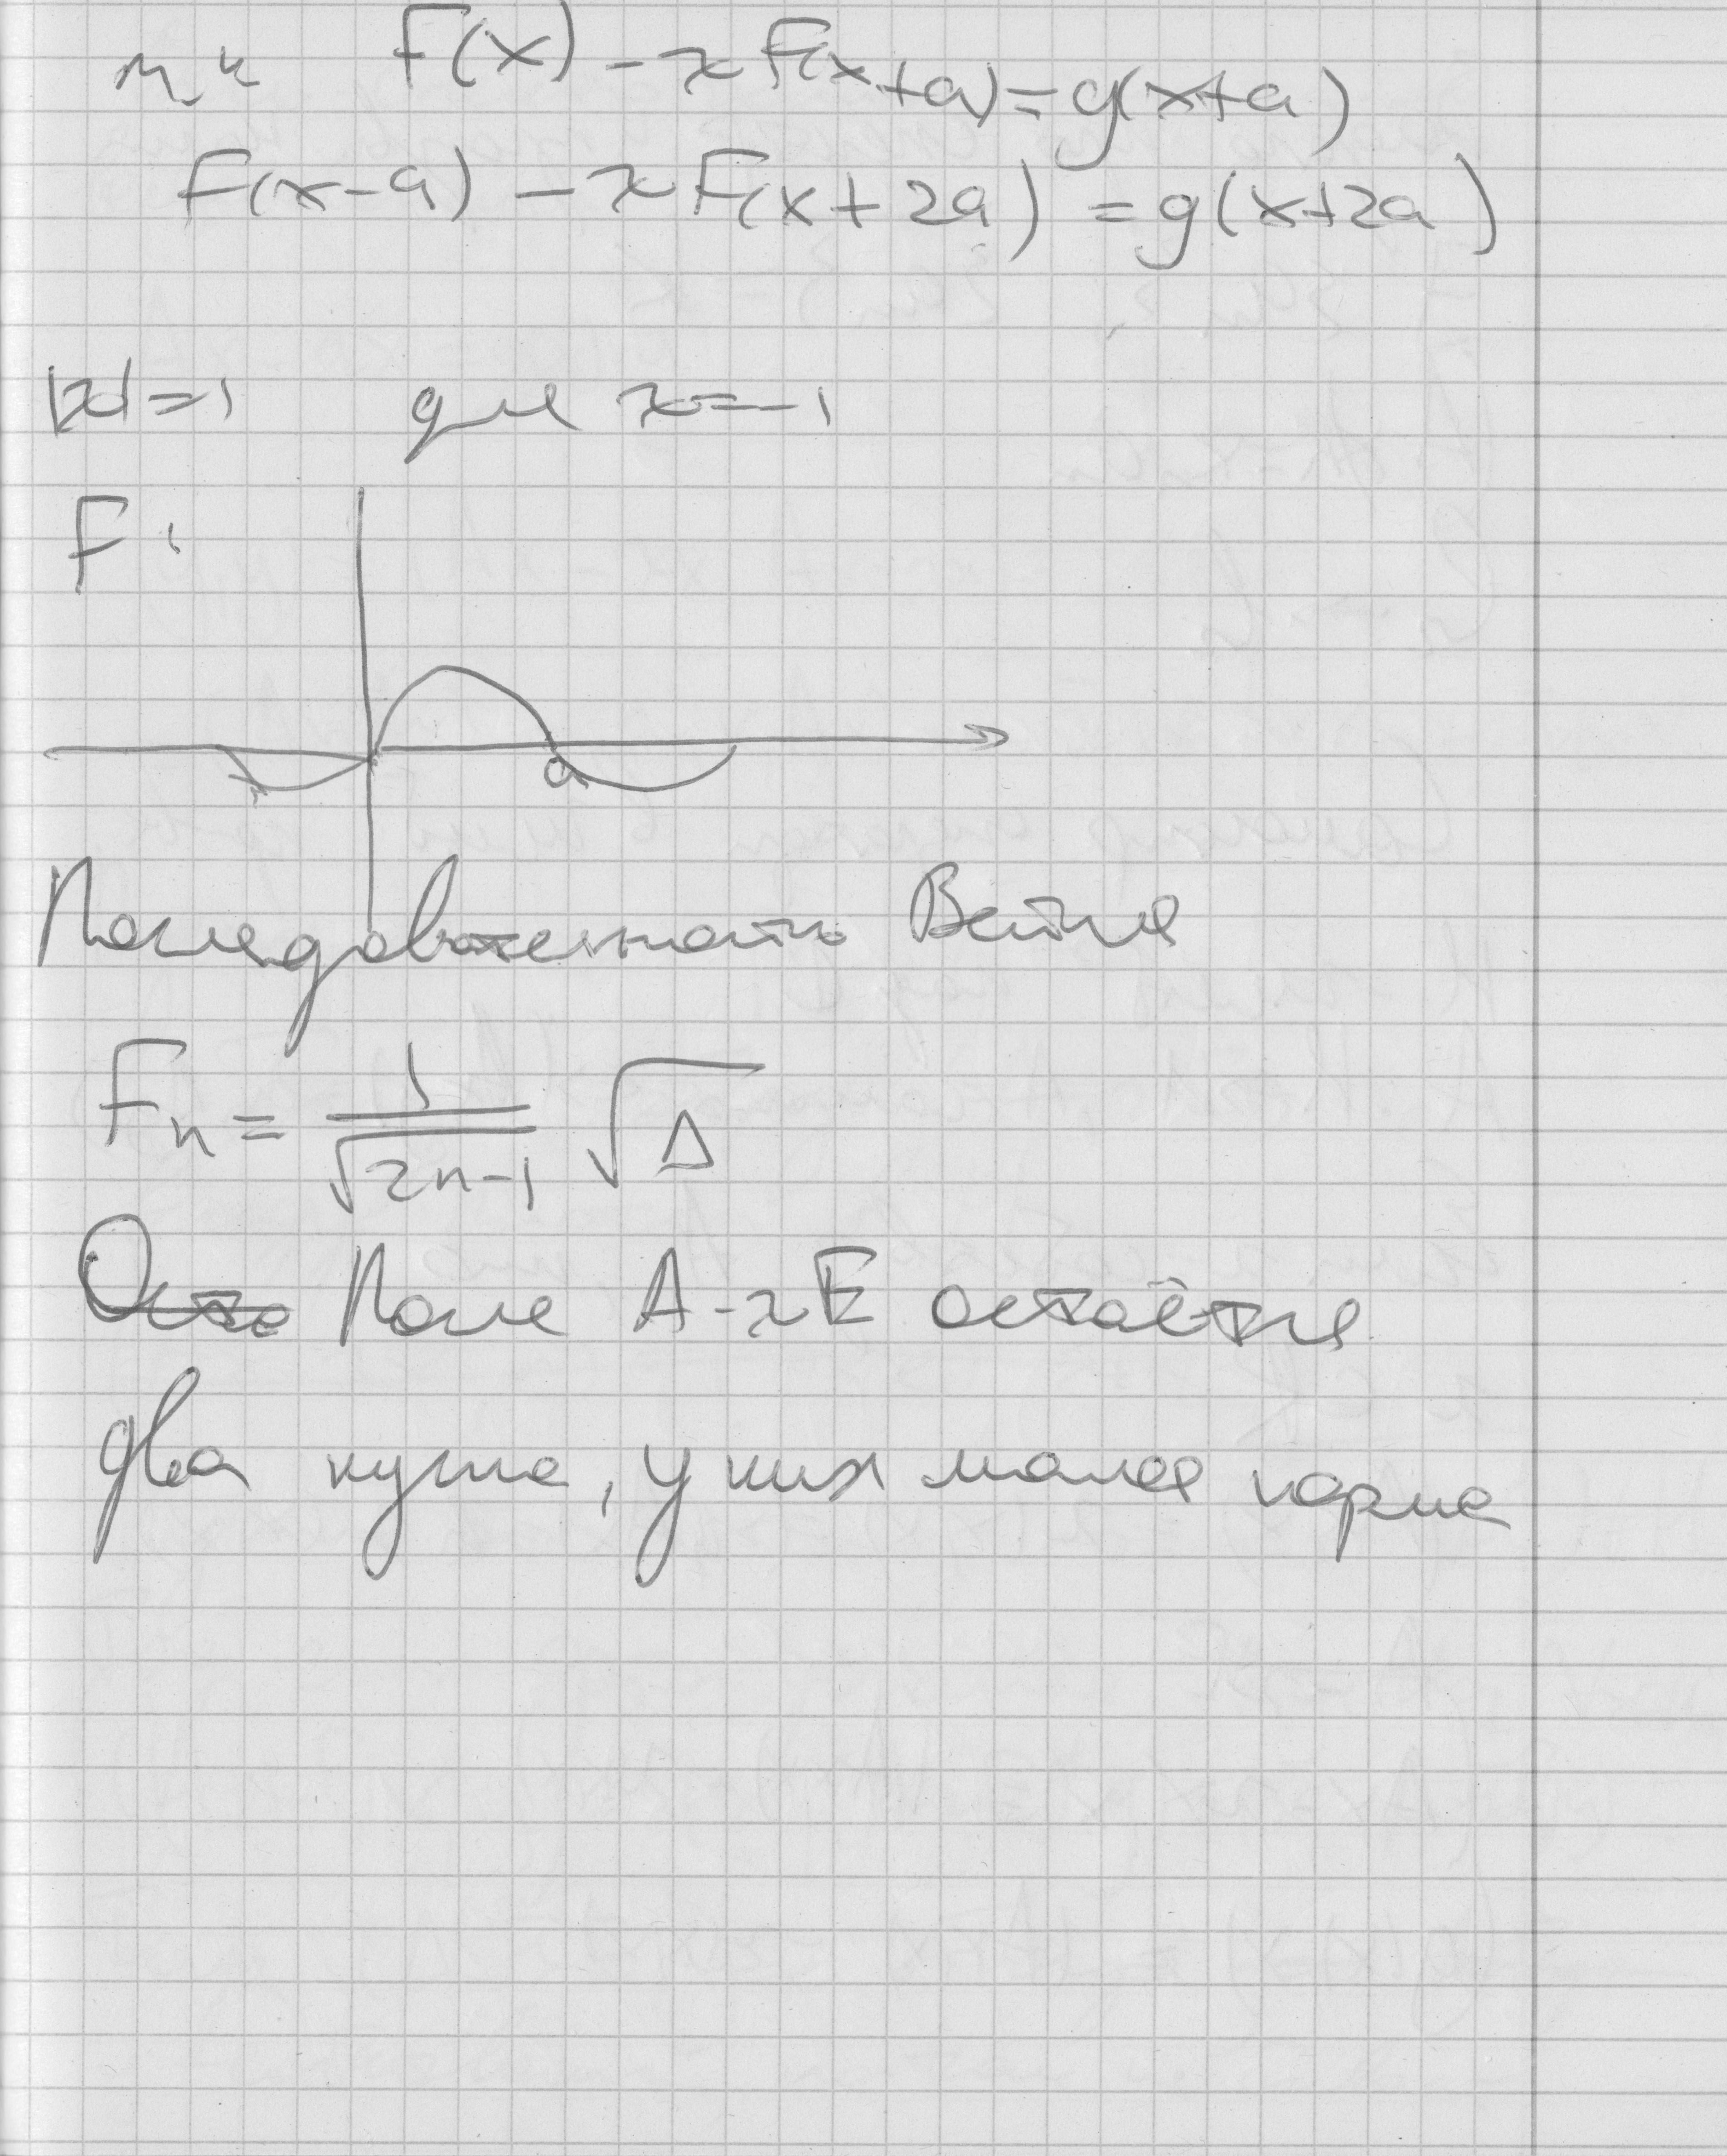 т.к F(x) - λF(x+a) = g(x+a)
F(x-a) - λF(x+2a) = g(x+2a)
|λ|=1 для λ=-1
F:
a
Последовательность Вейля
Fn = 1/√(2n-1) √Δ
После A-λE остаётся
два куска, у них малая норма